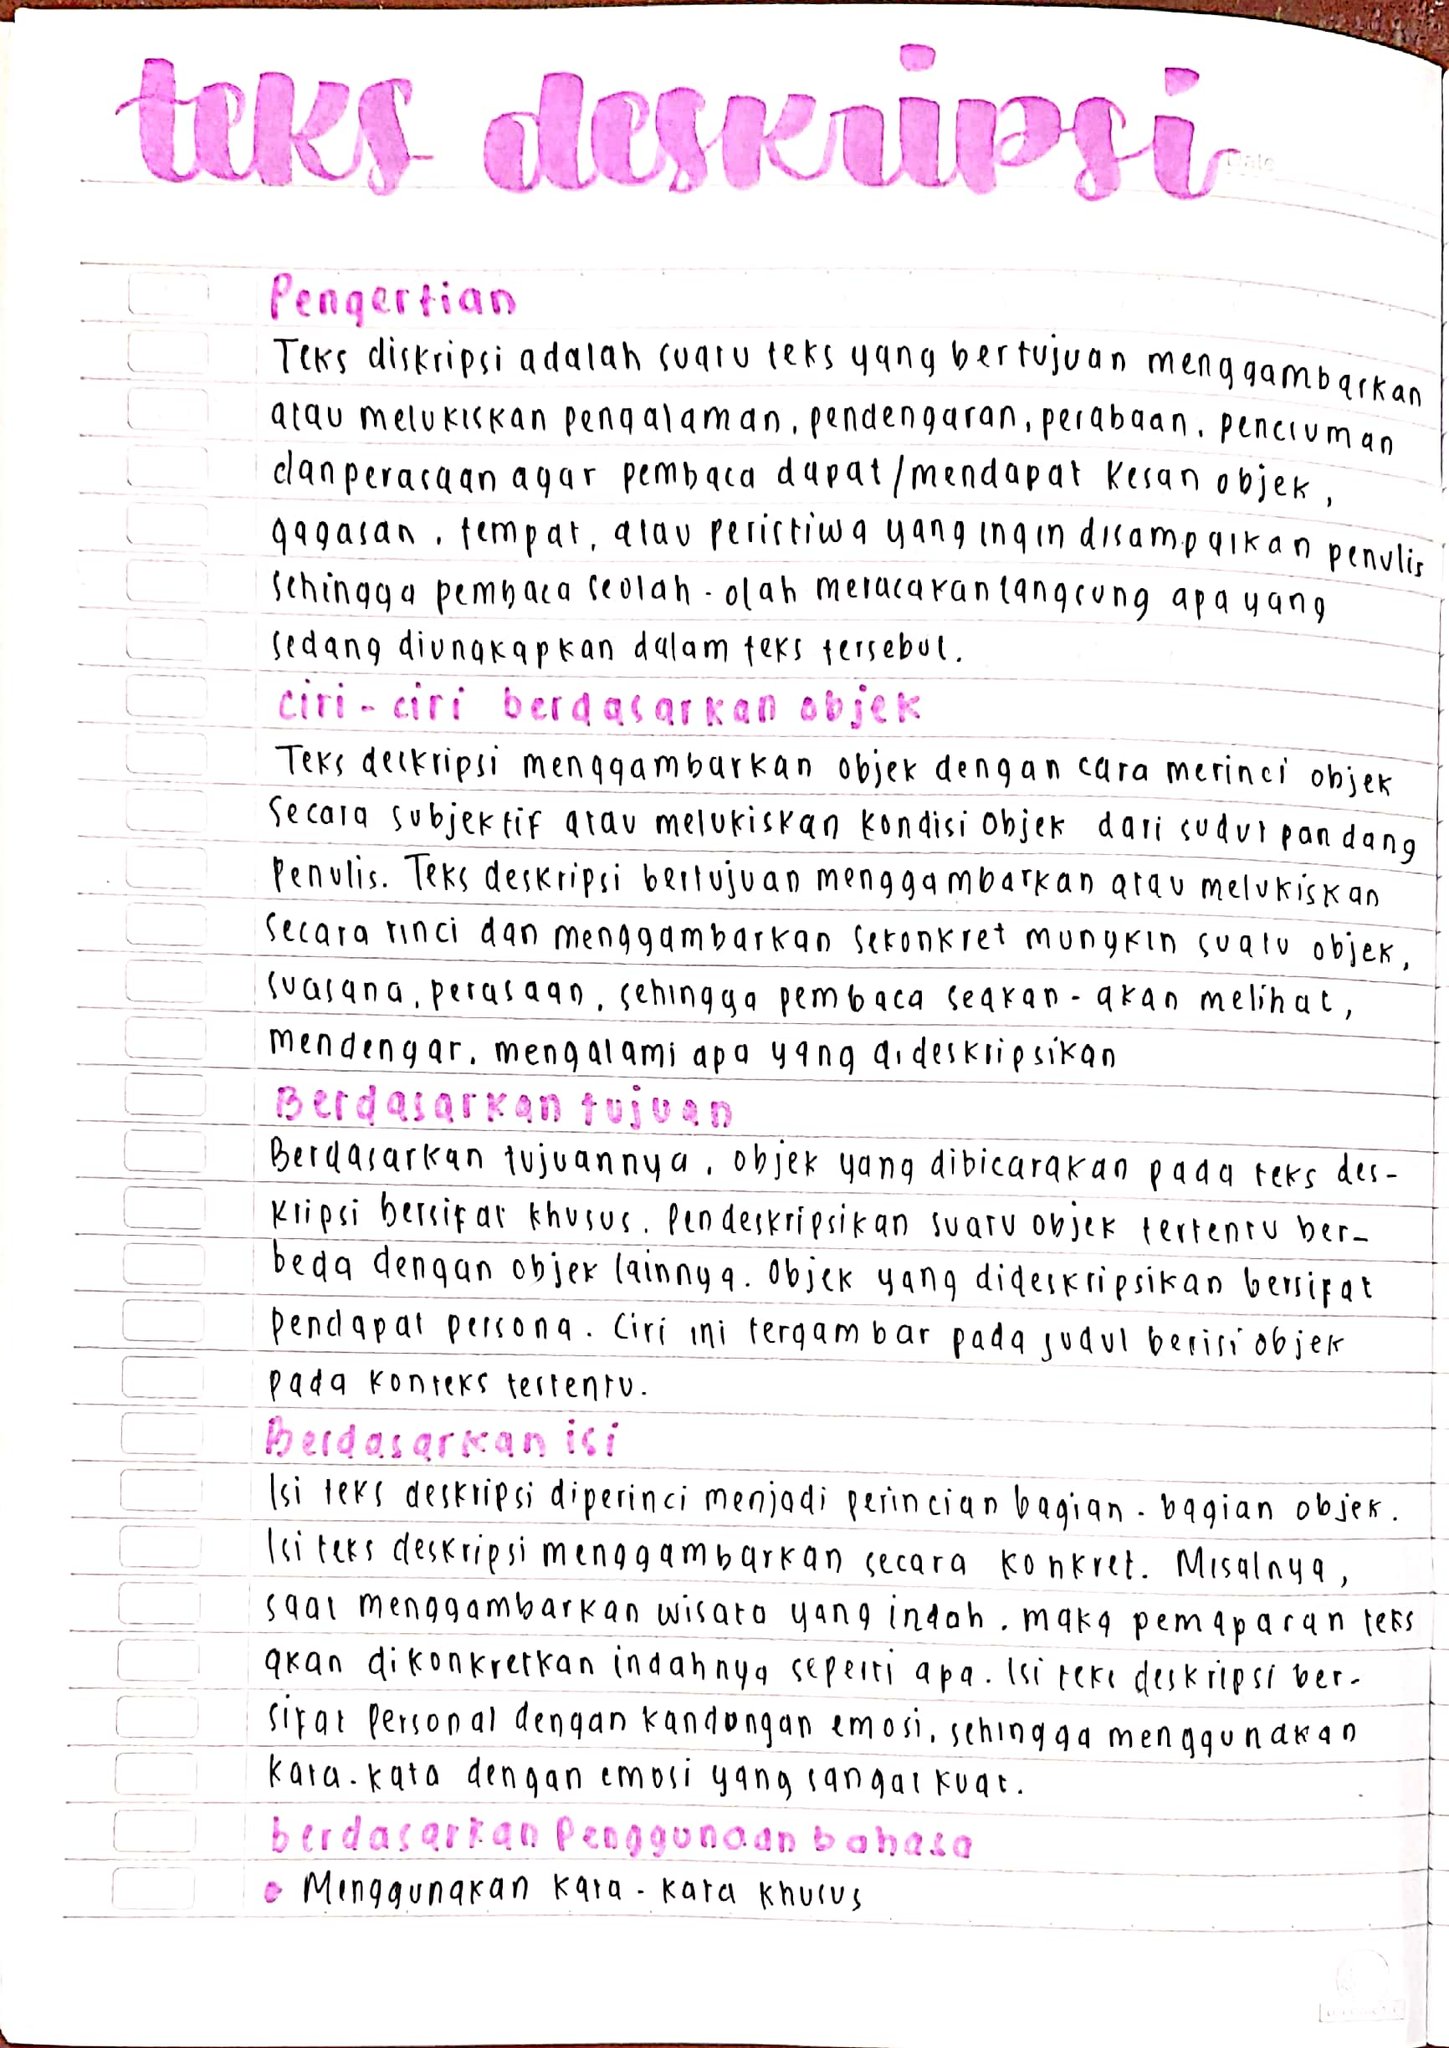 teks deskripsi
Date
Pengertian
Teks diskripsi adalah suatu teks yang bertujuan menggambarkan
atau melukiskan pengalaman, pendengaran, perabaan, penciuman
dan perasaan agar pembaca dapat/mendapat kesan objek,
gagasan, tempat, atau peristiwa yang ingin disampaikan penulis
sehingga pembaca seolah-olah merasakan langsung apa yang
sedang diungkapkan dalam teks tersebut.
Ciri-ciri berdasarkan objek
Teks deskripsi menggambarkan objek dengan cara merinci objek
secara subjektif atau melukiskan kondisi objek dari sudut pandang
Penulis. Teks deskripsi bertujuan menggambarkan atau melukiskan
secara rinci dan menggambarkan sekonkret mungkin suatu objek,
suasana, perasaan, sehingga pembaca seakan-akan melihat,
mendengar, mengalami apa yang dideskripsikan
Berdasarkan tujuan
Berdasarkan tujuannya, objek yang dibicarakan pada teks des-
kripsi bersifat khusus. Pendeskripsikan suatu objek tertentu ber-
beda dengan objek lainnya. Objek yang dideskripsikan bersifat
pendapat persona. Ciri ini tergambar pada judul berisi objek
pada konteks tertentu.
Berdasarkan isi
Isi teks deskripsi diperinci menjadi perincian bagian-bagian objek.
Isi teks deskripsi menggambarkan secara konkret. Misalnya,
saat menggambarkan wisata yang indah, maka pemaparan teks
akan dikonkretkan indahnya seperti apa. Isi teks deskripsi ber-
sifat personal dengan kandungan emosi, sehingga menggunakan
kata-kata dengan emosi yang sangat kuat.
berdasarkan Penggunaan bahasa
• Menggunakan kata-kata khusus